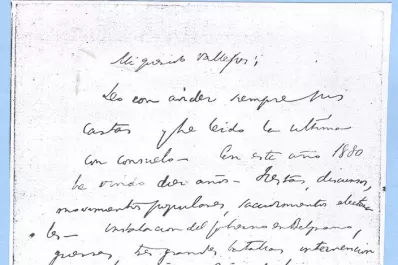 Mi querido Vallejos;
Leo con ávidez siempre sus
cartas y he leido la última
con consuelo - En este año 1880
he vivido diez años - Fiestas, discursos,
movimientos populares, sacudimientos electora
les - instalacion del gobierno en Belgrano,
guerras, tres grandes batallas, intervencion